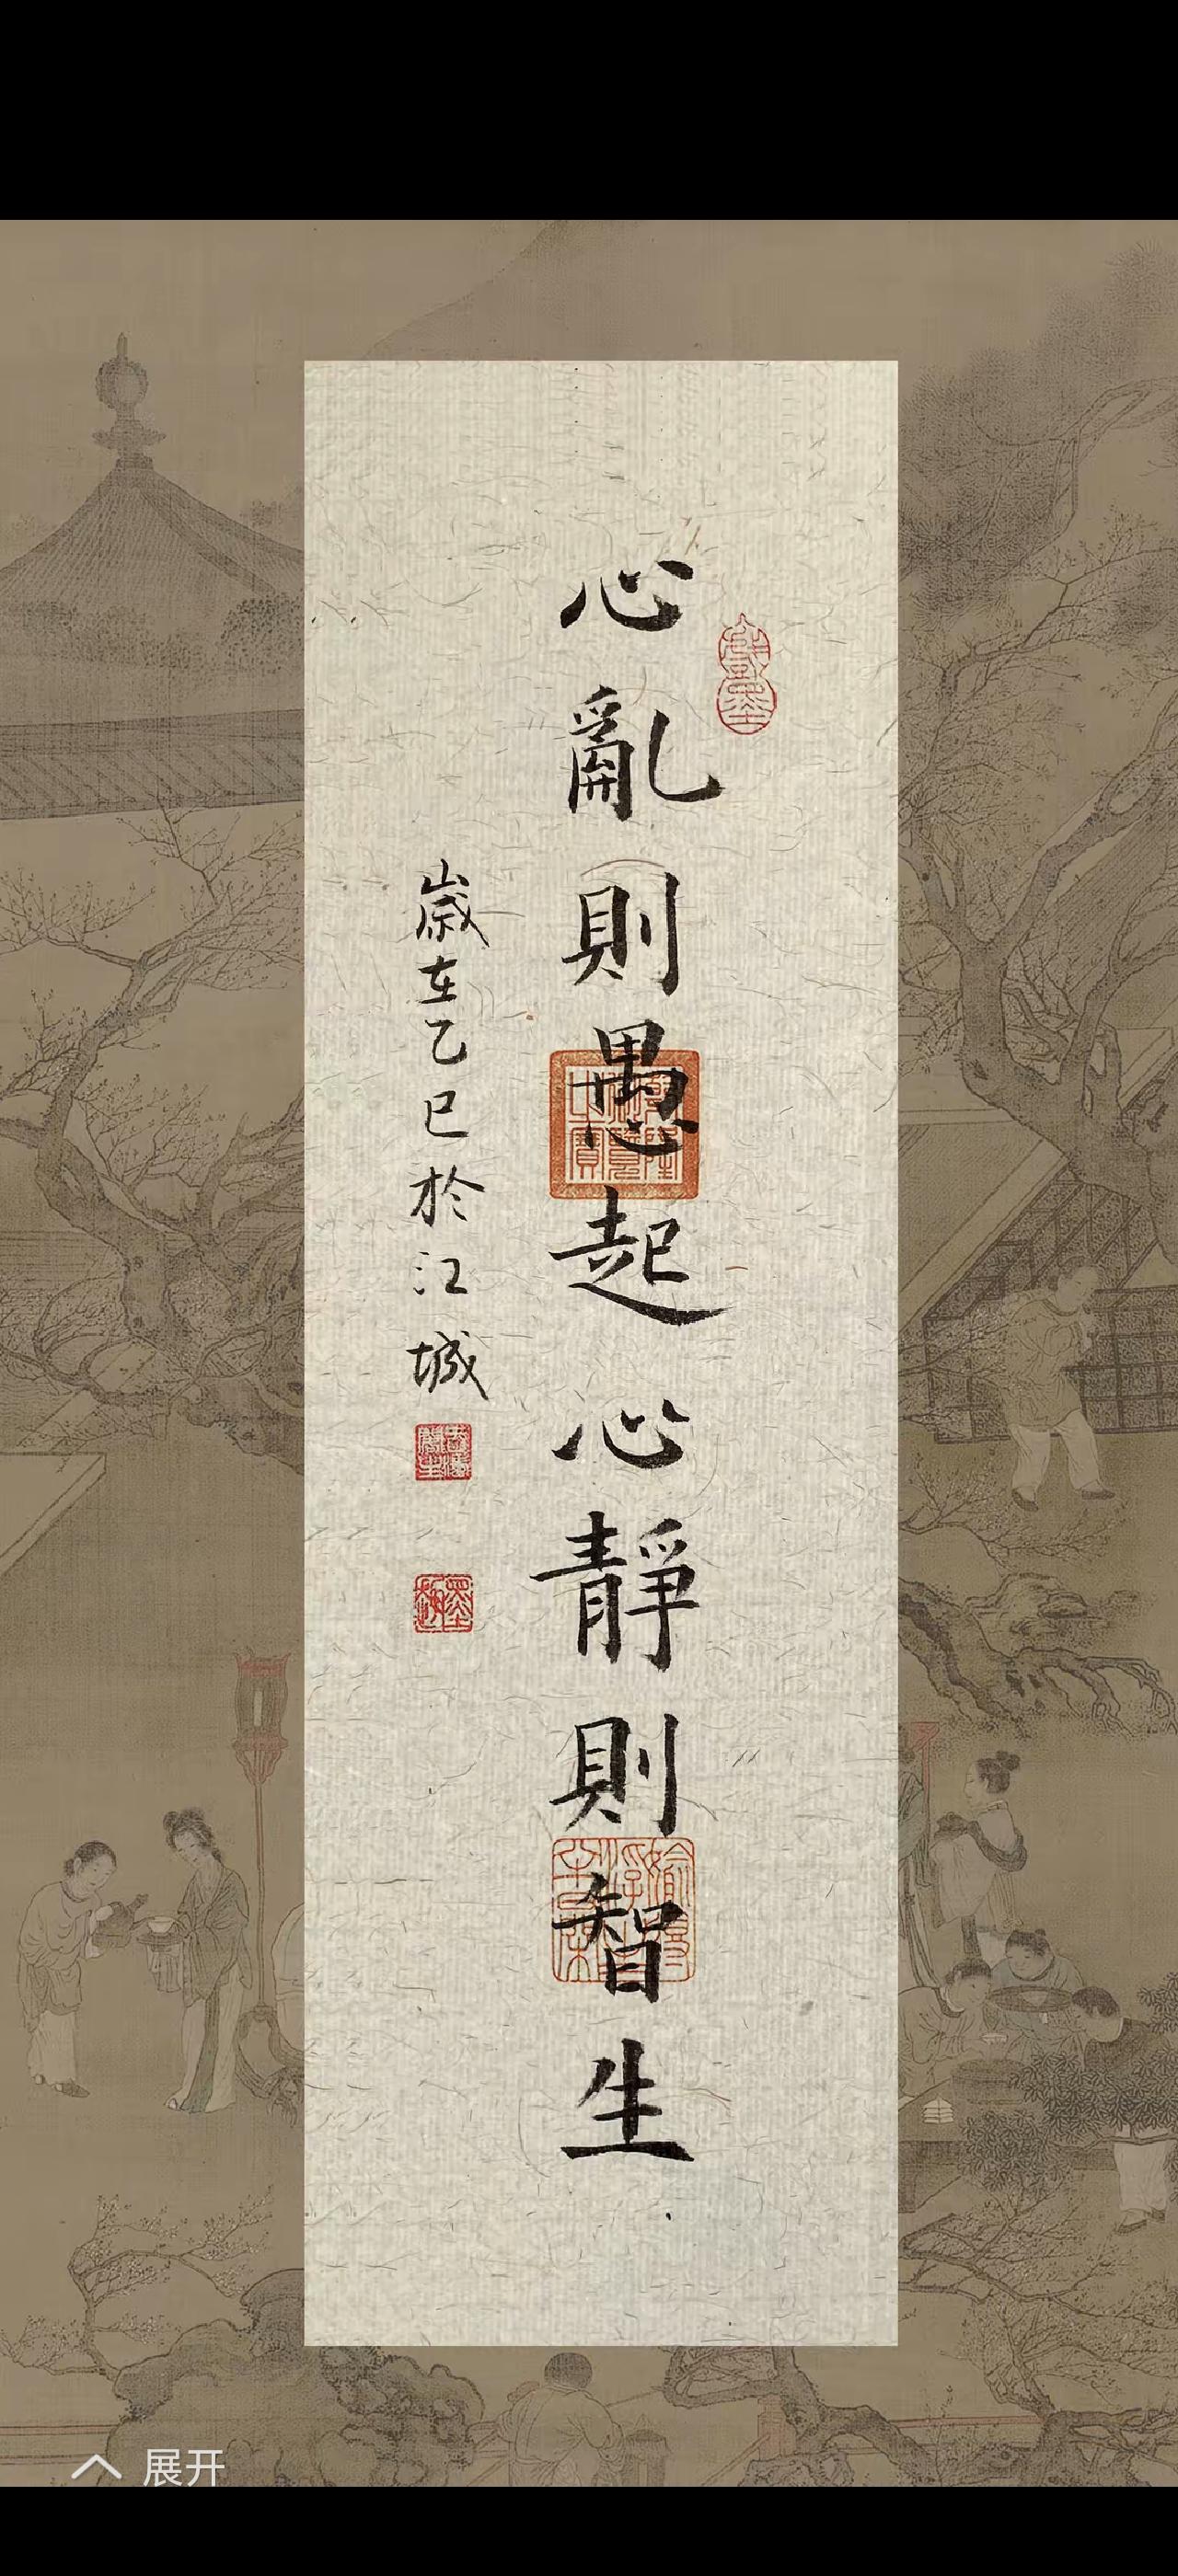 心亂則愚起心靜則智生
歲在乙巳於江城
展开